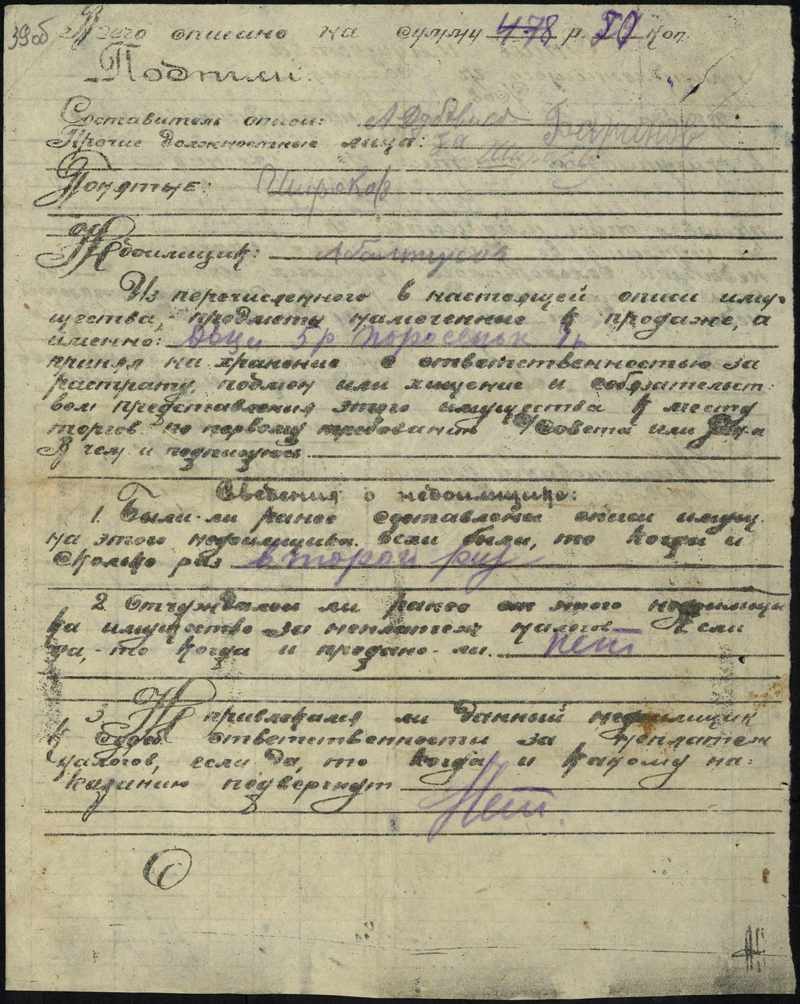 39 об
Всего описано на сумму 478 р. 50 коп.
Подписи:
Составитель описи:
Прочие должностные лица: за
Понятые: Широков
Недоимщик:
Из перечисленного в настоящей описи иму-
щества, предметы намеченные к продаже, а
именно: Овец 5 р Поросенок 1
принял на хранение с ответственностью за
растрату, подмен или хищение и собязательст
вом представления этого имущества к месту
торгов по первому требованию С/Совета или
В чем и подпишусь
Сведения о недоимщике:
1. Были-ли ранее составлены описи имущ.
на этого недоимщика. Если были, то когда и
сколько раз второй раз
2. Отчуждалось ли ранее от этого недоимщи
ка имущество за неплатеж налогов. Если
да, - то когда и продано-ли. нет
3. Привлекался ли данный недоимщик
к судеб. ответственности за неплатеж
налогов, если да, то когда и какому на-
казанию подвергнут
Нет.